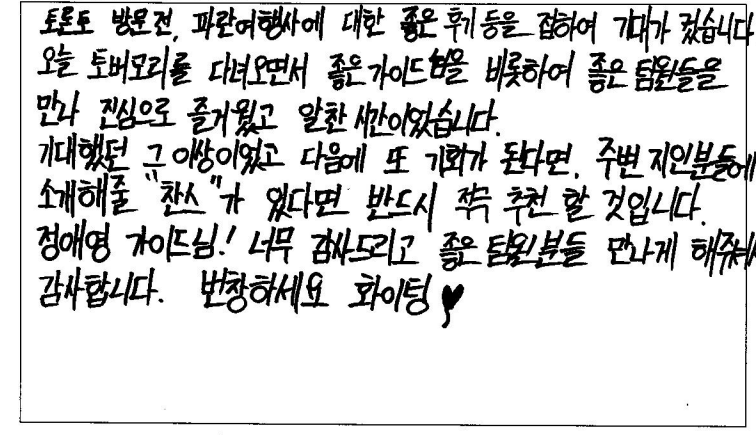 토론토 방문 전, 파란여행사에 대한 좋은 후기 등을 접하여 기대가 컸습니다
오늘 토버모리를 다녀오면서 좋은 가이드분을 비롯하여 좋은 팀원들을
만나 진심으로 즐거웠고 알찬 시간이었습니다.
기대했던 그 이상이었고 다음에 또 기회가 된다면, 주변 지인분들에
소개해줄 "찬스"가 있다면 반드시 적극 추천 할 것입니다.
정애영 가이드님! 너무 감사드리고 좋은 팀원분들 만나게 해주셔서
감사합니다. 번창하세요 화이팅♥